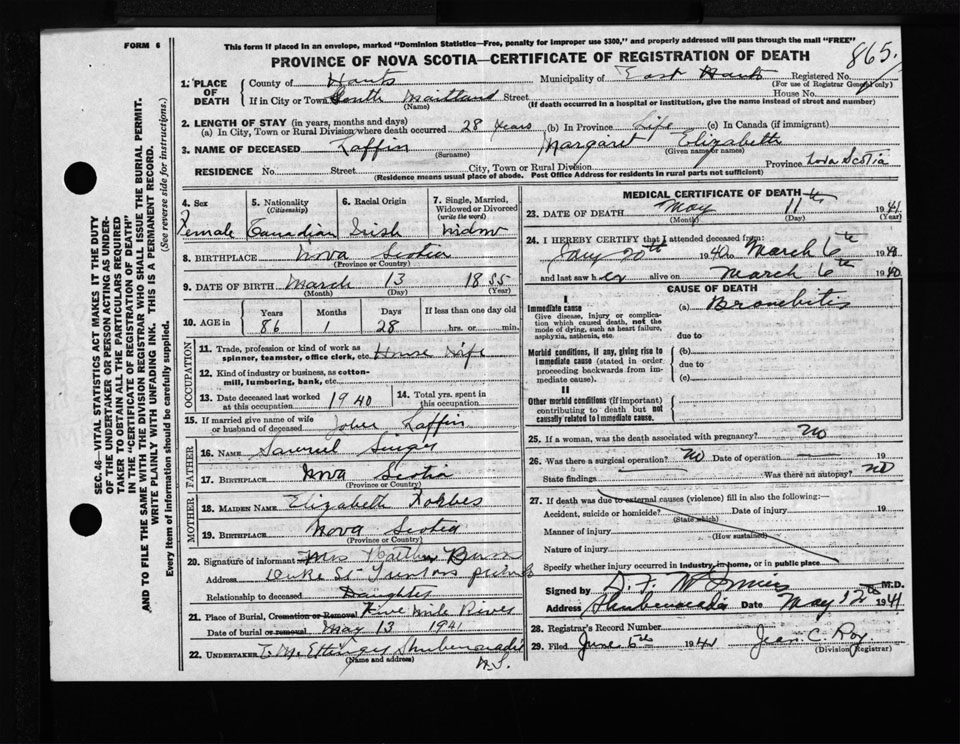 FORM 6
This form if placed in an envelope, marked "Dominion Statistics—Free, penalty for improper use $300," and properly addressed will pass through the mail "FREE"
PROVINCE OF NOVA SCOTIA—CERTIFICATE OF REGISTRATION OF DEATH
865.
1. PLACE OF DEATH
County of Hants Municipality of East Hants Registered No.
(For use of Registrar General only)
If in City or Town South Maitland Street House No.
(Name) (If death occurred in a hospital or institution, give the name instead of street and number)
2. LENGTH OF STAY (in years, months and days)
(a) In City, Town or Rural Division where death occurred 28 years (b) In Province Life (c) In Canada (if immigrant)
3. NAME OF DECEASED Laffin Margaret Elizabeth
(Surname) (Given name or names)
RESIDENCE No. Street City, Town or Rural Division Province Nova Scotia
(Residence means usual place of abode. Post Office Address for residents in rural parts not sufficient)
4. Sex Female
5. Nationality (Citizenship) Canadian
6. Racial Origin Irish
7. Single, Married, Widowed or Divorced (write the word) Widow
8. BIRTHPLACE Nova Scotia
(Province or Country)
9. DATE OF BIRTH March 13 1855
(Month) (Day) (Year)
10. AGE in Years Months Days If less than one day old
86 1 28 hrs. or min.
OCCUPATION
11. Trade, profession or kind of work as spinner, teamster, office clerk, etc. House Wife
12. Kind of industry or business, as cotton-mill, lumbering, bank, etc.
13. Date deceased last worked at this occupation 1940
14. Total yrs. spent in this occupation
15. If married give name of wife or husband of deceased John Laffin
FATHER
16. NAME Samuel
17. BIRTHPLACE Nova Scotia
(Province or Country)
MOTHER
18. MAIDEN NAME Elizabeth Forbes
19. BIRTHPLACE Nova Scotia
(Province or Country)
20. Signature of informant Mrs
Address Duke St
Relationship to deceased Daughter
21. Place of Burial, Cremation or Removal Five Mile River
Date of burial or removal May 13 1941
22. UNDERTAKER Ettinger Shubenacadie N.S.
(Name and address)
MEDICAL CERTIFICATE OF DEATH
23. DATE OF DEATH May 11th 1941
(Month) (Day) (Year)
24. I HEREBY CERTIFY that I attended deceased from:
20th 1940 to March 6th 1940
and last saw her alive on March 6th 1940
CAUSE OF DEATH
I
Immediate cause (a) Bronchitis
Give disease, injury or complication which caused death, not the mode of dying, such as heart failure, asphyxia, asthenia, etc. due to
Morbid conditions, if any, giving rise to immediate cause (stated in order proceeding backwards from immediate cause). (b) due to (c)
II
Other morbid conditions (if important) contributing to death but not causally related to immediate cause.
25. If a woman, was the death associated with pregnancy? No
26. Was there a surgical operation? No Date of operation 19
State findings Was there an autopsy? No
27. If death was due to external causes (violence) fill in also the following:—
Accident, suicide or homicide? Date of injury 19
(State which)
Manner of injury
(How sustained)
Nature of injury
Specify whether injury occurred in industry, in home, or in public place
Signed by D. F. M.D.
Address Shubenacadie Date May 12th 1941
28. Registrar's Record Number
29. Filed June 6th 1941 Jean C. Roy
(Division Registrar)
SEC. 46—VITAL STATISTICS ACT MAKES IT THE DUTY
OF THE UNDERTAKER OR PERSON ACTING AS UNDERTAKER TO OBTAIN ALL THE PARTICULARS REQUIRED
IN THE "CERTIFICATE OF REGISTRATION OF DEATH"
AND TO FILE THE SAME WITH THE DIVISION REGISTRAR WHO SHALL ISSUE THE BURIAL PERMIT.
WRITE PLAINLY WITH UNFADING INK. THIS IS A PERMANENT RECORD.
Every item of information should be carefully supplied. (See reverse side for instructions.)